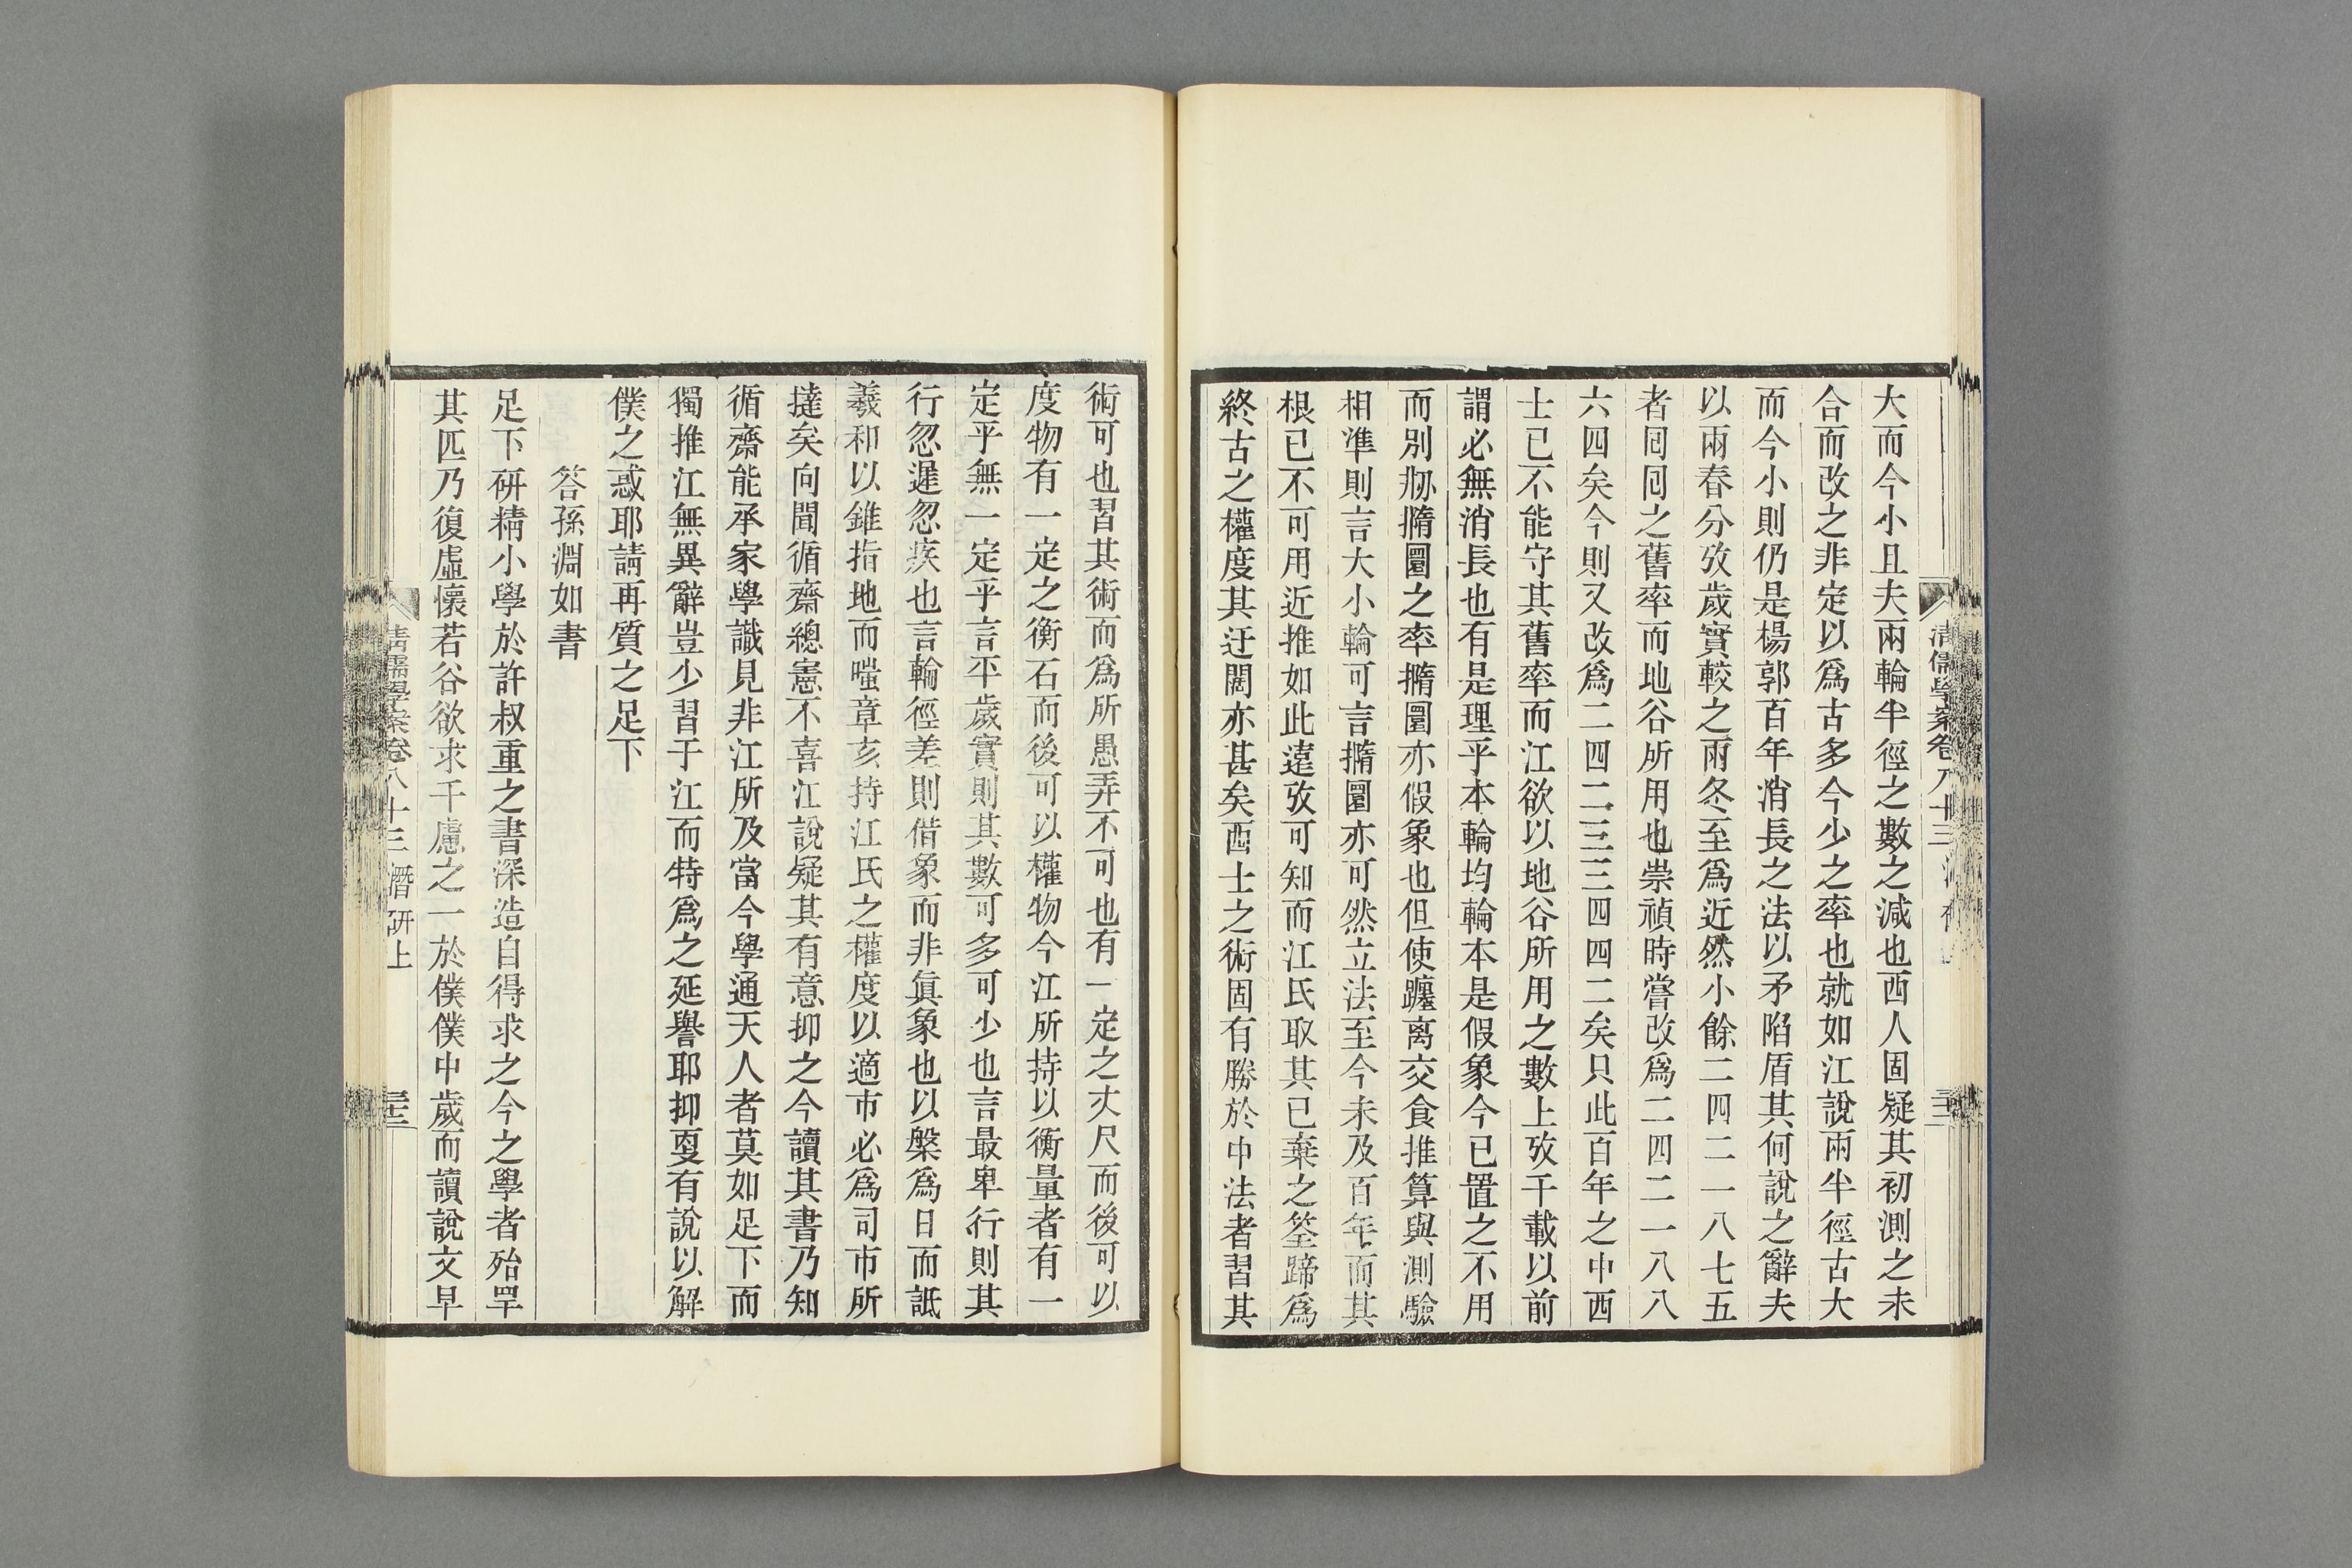 清儒學案卷八十三
大而今小且夫兩輪半徑之數之減也西人固疑其初測之未
合而改之非定以爲古多今少之率也就如江說兩半徑古大
而今小則仍是楊郭百年消長之法以矛陷盾其何說之辭夫
以兩春分攷歲實較之兩冬至爲近然小餘二四二一八七五
者囘囘之舊率而地谷所用也崇禎時嘗改爲二四二一八八
六四矣今則又改爲二四二三三四四二矣只此百年之中西
士已不能守其舊率而江欲以地谷所用之數上攷千載以前
謂必無消長也有是理乎本輪均輪本是假象今已置之不用
而別剙撱圜之率撱圜亦假象也但使躔离交食推算與測驗
相準則言大小輪可言撱圜亦可然立法至今未及百年而其
根已不可用近推如此遠攷可知而江氏取其已棄之筌蹄爲
終古之權度其迂闊亦甚矣西士之術固有勝於中法者習其
術可也習其術而爲所愚弄不可也有一定之丈尺而後可以
度物有一定之衡石而後可以權物今江所持以衡量者有一
定乎無一定乎言平歲實則其數可多可少也言最卑行則其
行忽遲忽疾也言輪徑差則借象而非眞象也以槃爲日而詆
羲和以錐指地而嗤章亥持江氏之權度以適市必爲司市所
撻矣向聞循齋總憲不喜江說疑其有意抑之今讀其書乃知
循齋能承家學識見非江所及當今學通天人者莫如足下而
獨推江無異辭豈少習于江而特爲之延譽耶抑更有說以解
僕之惑耶請再質之足下
答孫淵如書
足下研精小學於許叔重之書深造自得求之今之學者殆罕
其匹乃復虛懷若谷欲求千慮之一於僕僕中歲而讀說文早
清儒學案卷八十三 潛研上